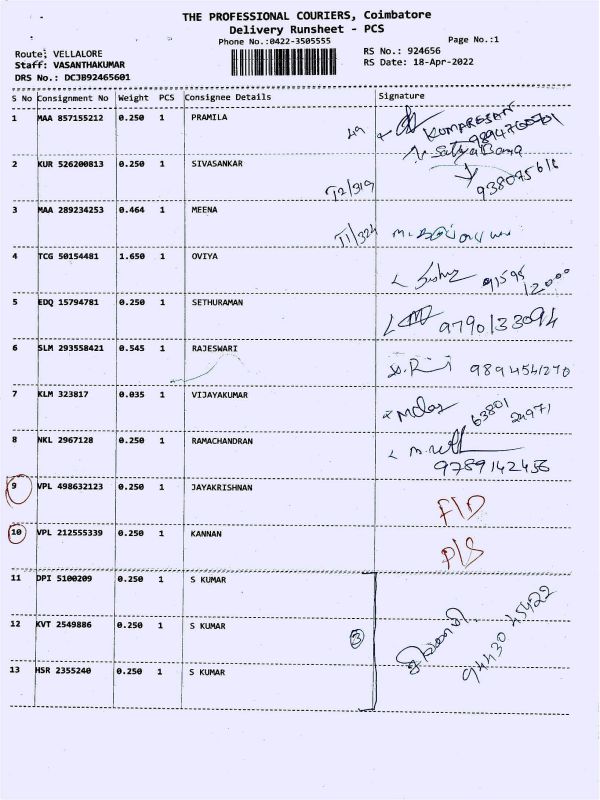 THE PROFESSIONAL COURIERS, Coimbatore
Delivery Runsheet - PCS
Phone No.:0422-3505555
Page No.:1
Route: VELLALORE
Staff: VASANTHAKUMAR
DRS No.: DCJ892465601
RS No.: 924656
RS Date: 18-Apr-2022
S No Consignment No Weight PCS Consignee Details Signature
1 MAA 857155212 0.250 1 PRAMILA
KUMARESAN
2 KUR 526200813 0.250 1 SIVASANKAR
T2/319
3 MAA 289234253 0.464 1 MEENA
T1/324
4 TCG 50154481 1.650 1 OVIYA
91595
12000
5 EDQ 15794781 0.250 1 SETHURAMAN
9790133094
6 SLM 293558421 0.545 1 RAJESWARI
9894541270
7 KLM 323817 0.035 1 VIJAYAKUMAR
63801
24971
8 NKL 2967128 0.250 1 RAMACHANDRAN
9789142456
9 VPL 498632123 0.250 1 JAYAKRISHNAN
F/D
10 VPL 212555339 0.250 1 KANNAN
P/S
11 DPI 5100209 0.250 1 S KUMAR
12 KVT 2549886 0.250 1 S KUMAR
3
94430 45422
13 HSR 2355240 0.250 1 S KUMAR